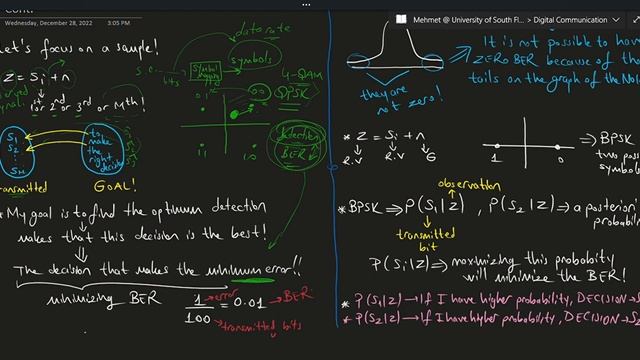 Cont.
Wednesday, December 28, 2022 3:05 PM
Mehmet @ University of South Fl... > Digital Communication
Let's focus on a sample!
data rate
symbols
bits
Symbol
4-QAM
QPSK
00
11
10
detection
BER
z = si + n
1st or 2nd or 3rd or Mth!
S1
S2
SM
to
make
the
right
decision
transmitted
GOAL!
My goal is to find the optimum detection
makes that this decision is the best!
The decision that makes the minimum error!!
minimizing BER
1 → error
100 → transmitted bits
= 0.01 → BER
It is not possible to have
ZERO BER because of the
tails on the graph of the
they are
not zero!
* z = si + n
R.V R.V G
1 0
⇒ BPSK
two
symbols
observation
* BPSK ⇒ P(S1|z), P(S2|z) ⇒ a posteriori
probability
transmitted
bit
P(Si|z) ⇒ maximizing this probability
will minimize the BER!
* P(S1|z) → If I have higher probability, DECISION → S
* P(S2|z) → If I have higher probability, DECISION → S